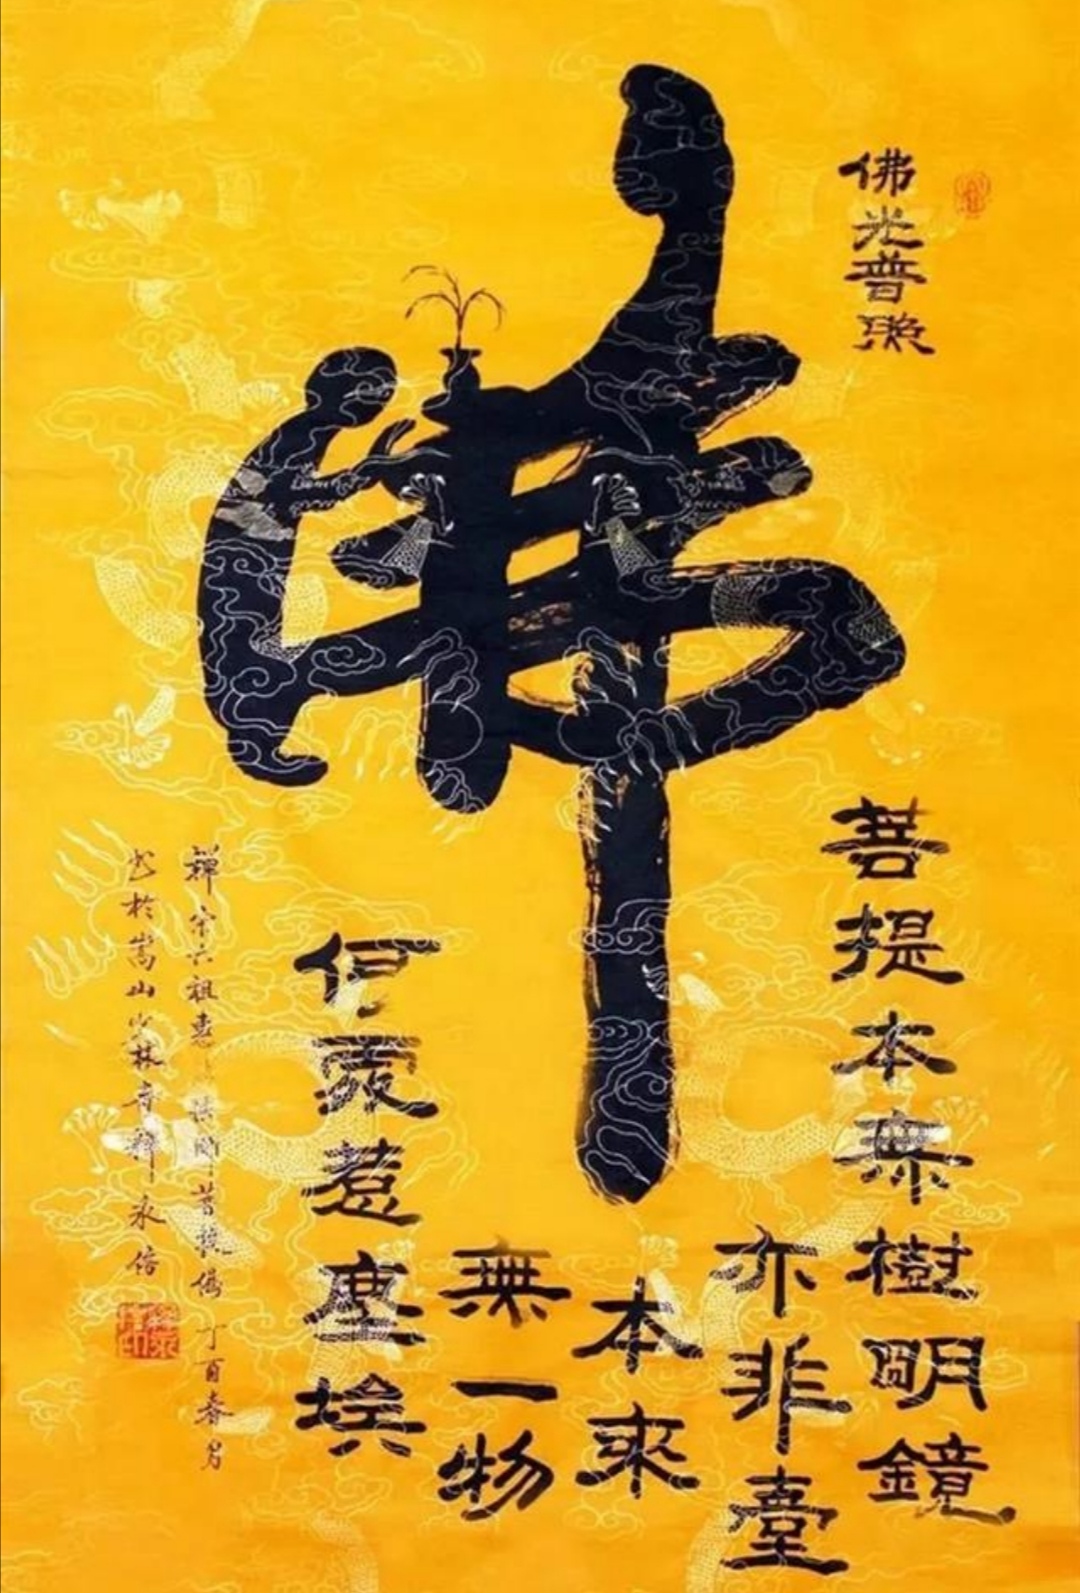 佛
佛光普照
菩提本無樹明鏡
亦非臺
本來
無一物
何處惹塵埃
禪宗六祖惠
菩提偈 丁酉春月
書於嵩山少林寺釋永信